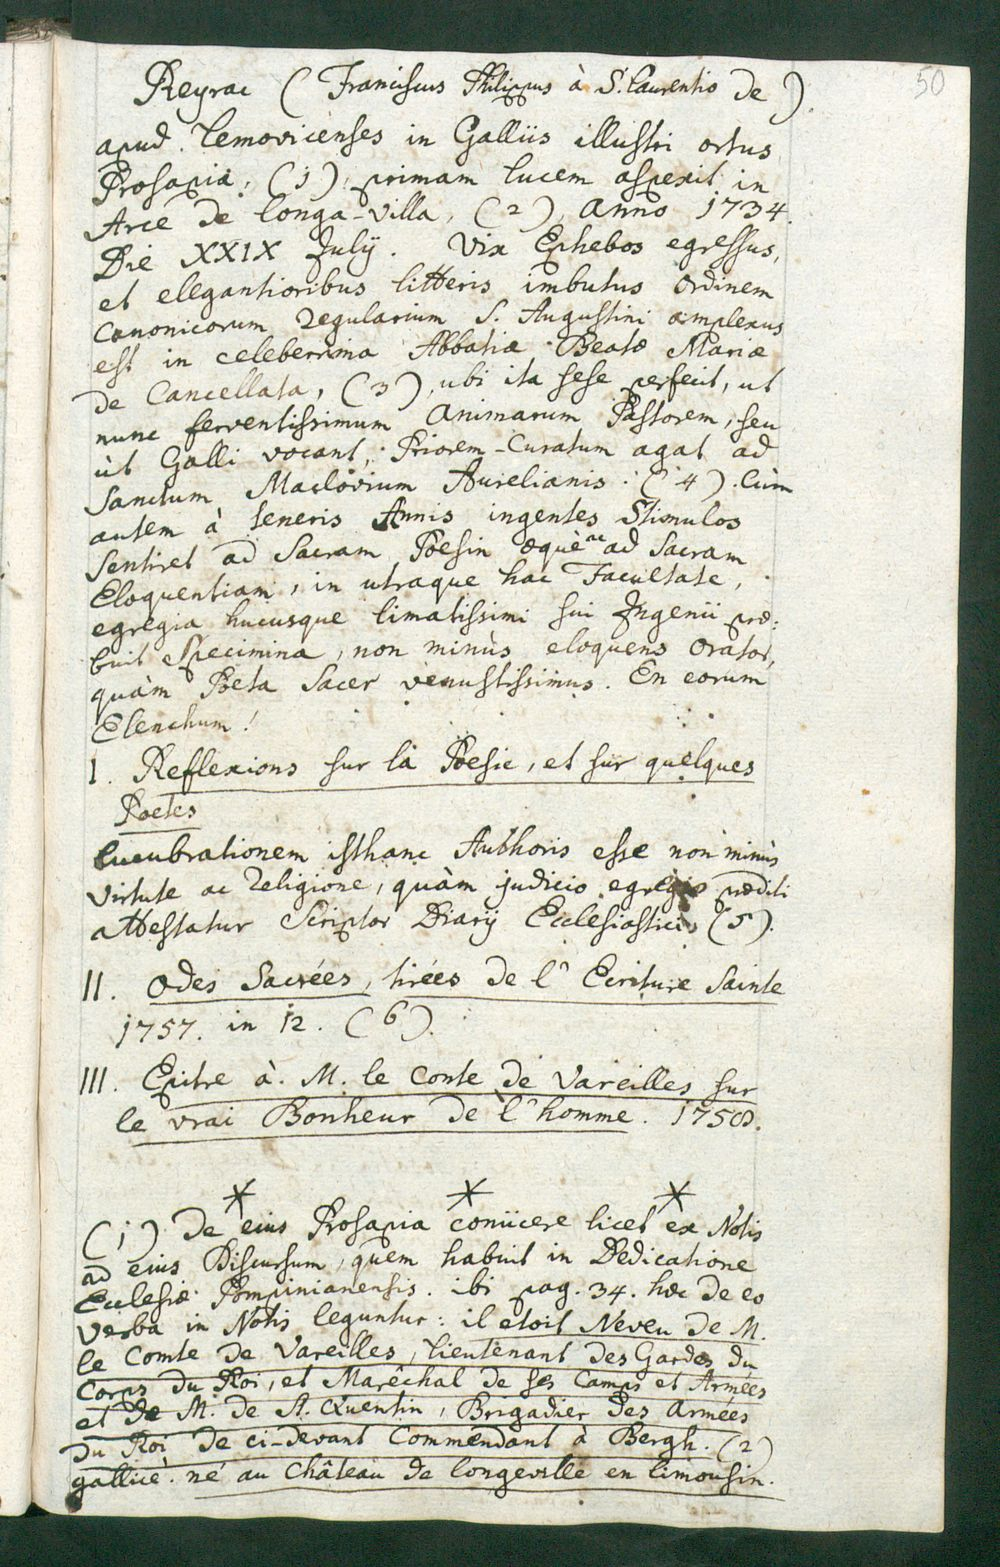 50
Reyrac (Franciscus Philippus à S. Laurentio de).
apud Lemovicenses in Galliis illustri ortus
Prosapia, (1) primam lucem aspexit in
Arce de Longa-villa, (2), anno 1734.
Die XXIX Julij. Vix Ephebos egressus,
et elegantioribus litteris imbutus Ordinem
Canonicorum Regularium S. Augustini amplexus
est in celeberrima Abbatia Beatæ Mariæ
de Cancellata, (3), ubi ita sese perfecit, ut
nunc ferventissimum Animarum Pastorem, seu
ùt Galli vocant, Priorem-Curatum agat ad
Sanctum Maclovium Aurelianis. (4). Cùm
autem à teneris Annis ingentes Stimulos
sentiret ad Sacram Poesin æquè ac ad Sacram
Eloquentiam, in utraque hac Facultate,
egregia hucusque limatissimi sui Ingenii præ:
buit Specimina, non minùs eloquens Orator,
quàm Poeta Sacer venustissimus. En eorum
Elenchum!
I. Reflexions sur la Poesie, et sur quelques
Poetes
Lucubrationem isthanc Authoris esse non minùs
virtute ac Religione, quàm judicio egregio præditi
attestatur Scriptor Diarij Ecclesiastici (5).
II. Odes Sacrées, tirées de l' Ecriture Sainte
1757. in 12. (6).
III. Epitre à. M. le Conte de Vareilles sur
le vrai Bonheur de l'homme. 1758.
* * *
(1) De eius Prosapia coniicere licet ex Notis
ad eius Discursum, quem habuit in Dedicatione
Ecclesiæ Pompinianensis. ibi pag. 34. hæc de eo
verba in Notis leguntur: il etoit Neveu de M.
le Comte de Vareilles, Lieutenant des Gardes du
Corps du Roi, et Marêchal de ses Camps et Armées
et de M. de St. Quentin, Brigadier des Armées
du Roi de ci-devant Commendant à Bergh. (2)
gallicè. né au Château de Longeville en Limousin.